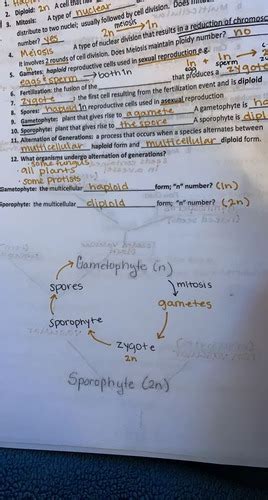 2. Diploid: 2n
3. Mitosis: A type of nuclear
distribute to two nuclei; usually followed by cell division. Does
number? NO 2n → 1n
Meiosis A type of nuclear division that results in a reduction of chromosome
It involves 2 rounds of cell division. Does Meiosis maintain ploidy number? no
5. Gametes: haploid reproductive cells used in sexual reproduction e.g.
eggs sperm → both 1n 1n + 1n
egg sperm
6. Fertilization: the fusion of the that produces a zygote
7. zygote the first cell resulting from the fertilization event and is diploid
8. Spores: haploid 1n reproductive cells used in asexual reproduction
9. Gametophyte: plant that gives rise to a gamete A gametophyte is
10. Sporophyte: plant that gives rise to the spore A sporophyte is dipl
11. Alternation of Generations: a process that occurs when a species alternates between
multicellular haploid form and multicellular diploid form.
12. What organisms undergo alternation of generations?
some fungus
- all plants
- some protists
Gametophyte: the multicellular haploid form; "n" number? (1n)
Sporophyte: the multicellular diploid form; "n" number? (2n)
Gametophyte (n)
spores
mitosis
gametes
sporophyte
zygote
2n
Sporophyte (2n)